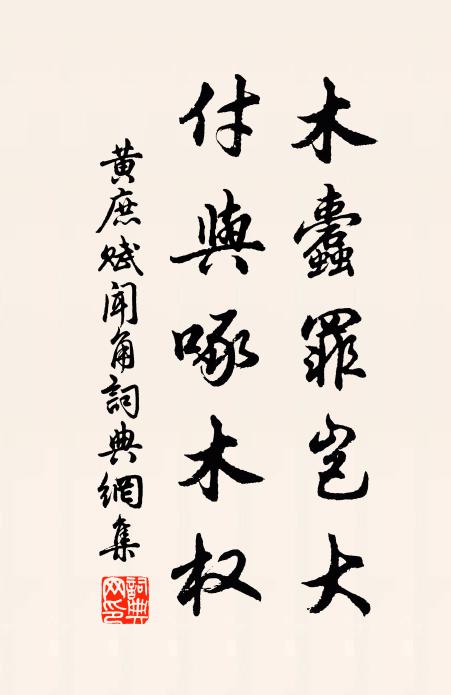 木蠹罪岂大
付與啄木权
黃庶赋闻角詞典網集
詞典网印